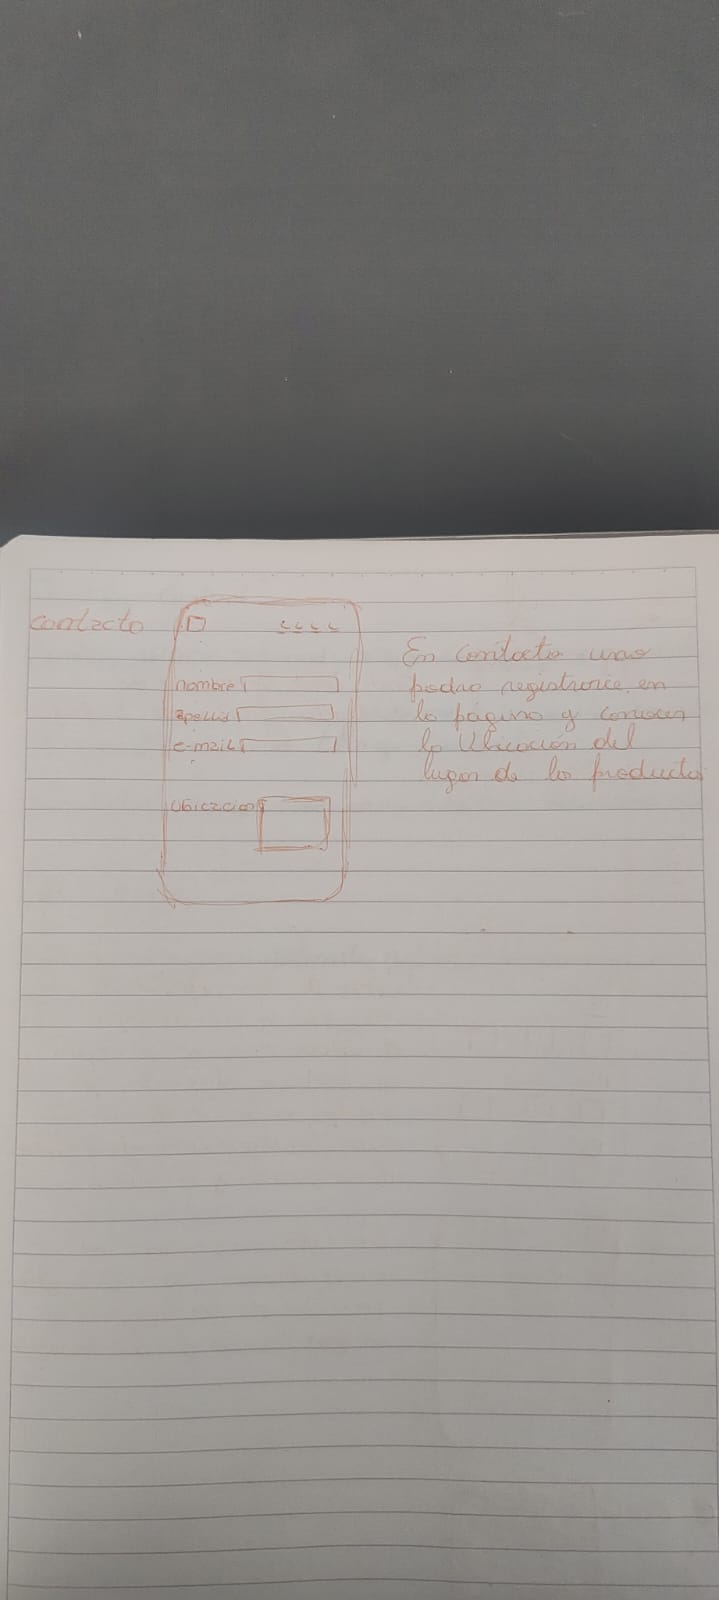 contacto
nombre
apellid
e-mail
ubicacion
En Contacto uno
podra registrarce en
la página y conocer
la Ubicación del
lugar de la producto